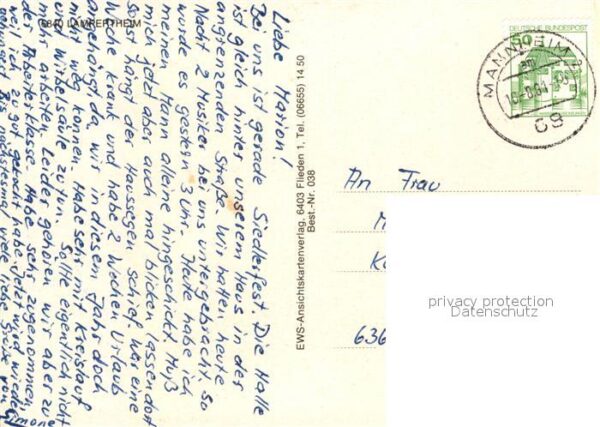 6840 LAMPERTHEIM
Liebe Marion!
Bei uns ist gerade Siedlerfest. Die Halle
ist gleich hinter unserem Haus in der
angrenzenden Straße. Wir hatten heute
Nacht 2 Musiker bei uns untergebracht. So
wurde es gestern 3 Uhr. Heute habe ich
meinen Mann alleine hingeschickt. Muß
mich jetzt aber auch mal blicken lassen dort
Sonst hängt der Haussegen schief. War eine
Woche krank und habe 2 Wochen Urlaub
angehängt, da wir in diesem Jahr doch
nicht weg können. Habe sehr mit Kreislauf
und Wirbelsäule zu tun. Sollte eigentlich nicht
mehr arbeiten. Leider gehören wir aber zu
der Arbeiterklasse. Habe sehr zugenommen
weil ich zu gut gekocht habe. Jetzt wird wieder
Bis nächstesmal viele liebe Grüße von
Simone
EWS-Ansichtskartenverlag, 6403 Flieden 1, Tel. (06655) 14 50
Best.-Nr. 038
DEUTSCHE BUNDESPOST
50
MANNHEIM
cg
An Frau
M
K
636
privacy protection
Datenschutz